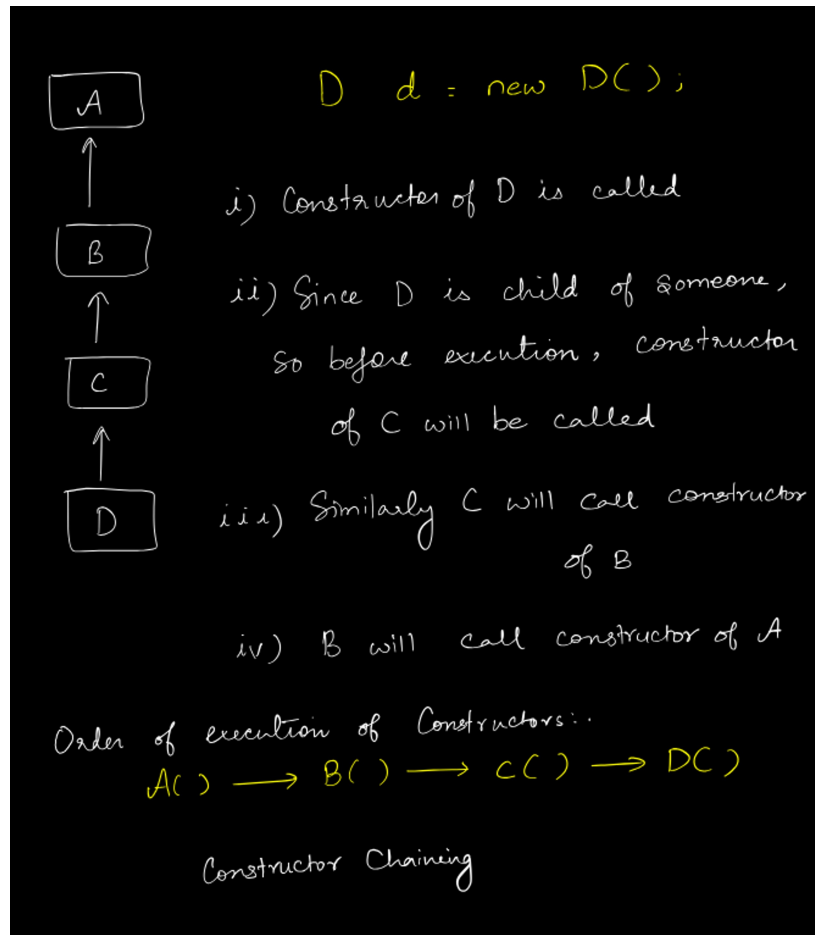 A
D d = new D();
i) Constructor of D is called
B
ii) Since D is child of someone,
so before execution, constructor
of C will be called
C
D
iii) Similarly C will call constructor
of B
iv) B will call constructor of A
Order of execution of Constructors:.
A() → B() → C() → D()
Constructor Chaining